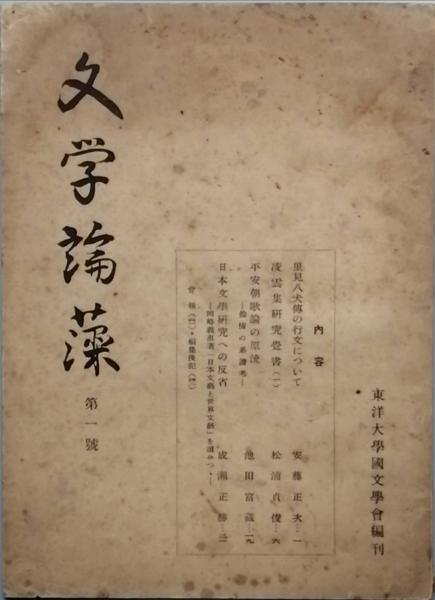 東洋大學國文學會編刊
內容
里見八犬傳の行文について 安藤正次…一
凌雲集研究覺書(一) 松浦貞俊…六
平安朝歌論の原流 池田富蔵…一九
—餘情の系譜考—
日本文學研究への反省 成瀬正勝…三一
—岡崎義惠著「日本文藝と世界文藝」を讀みつゝ—
會報・編集後記
文学論藻
第一號